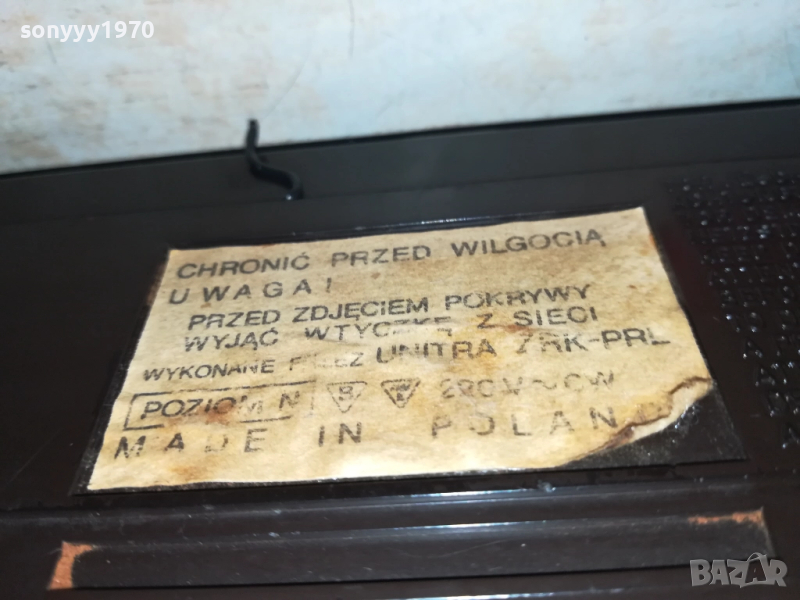 sonyyy1970
CHRONIĆ PRZED WILGOCIĄ
UWAGA!
PRZED ZDJĘCIEM POKRYWY
WYJĄĆ WTYCZKĘ Z SIECI
WYKONANE PRZEZ UNITRA ZRK-PRL
POZIOM N B 220V~
MADE IN POLAND
BAZAR